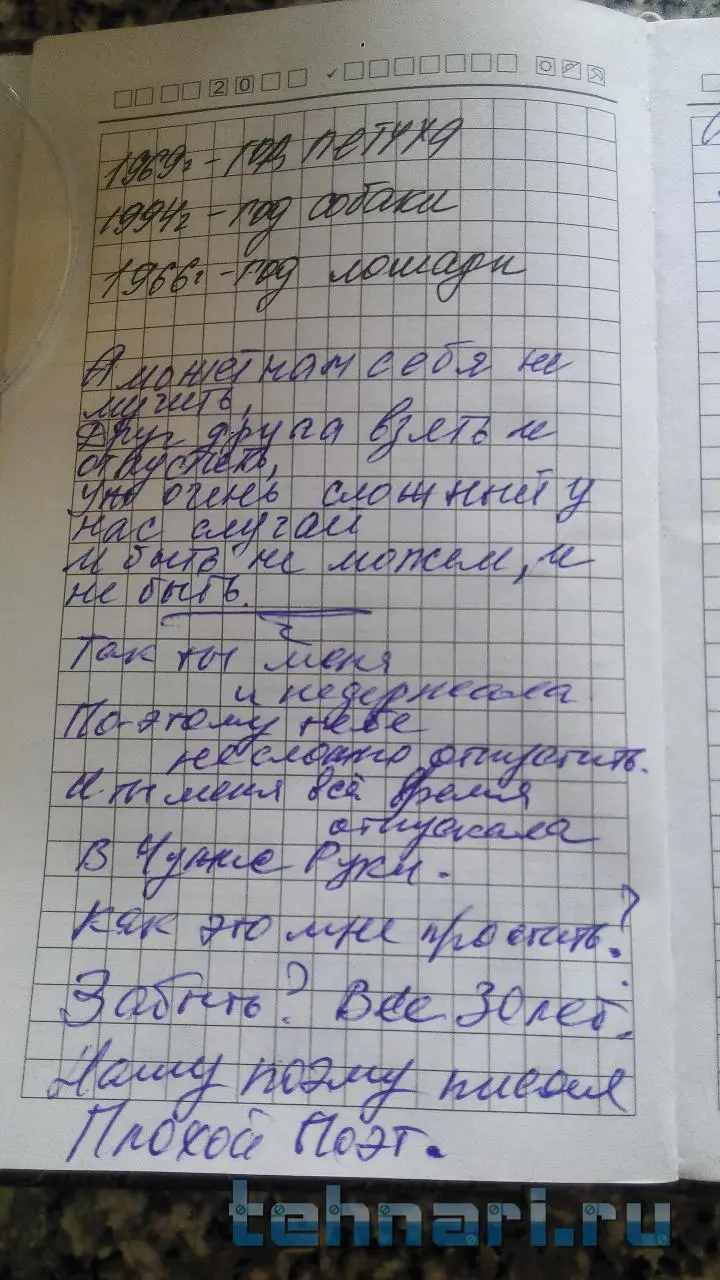 20
1969г - год петуха
1994г - год собаки
1966г - год лошади
А может нам себя не
мучить,
Друг друга взять и
отпустить,
Уж очень сложный у
нас случай
и быть не можем, и
не быть.
Так ты меня
и недержала
По-этому тебе
несложно отпустить.
И ты меня всё время
отпускала
В Чужие Руки.
Как это мне простить?
Забыть? Все 30 лет.
Нашу поэму писал
Плохой Поэт.
tehnari.ru